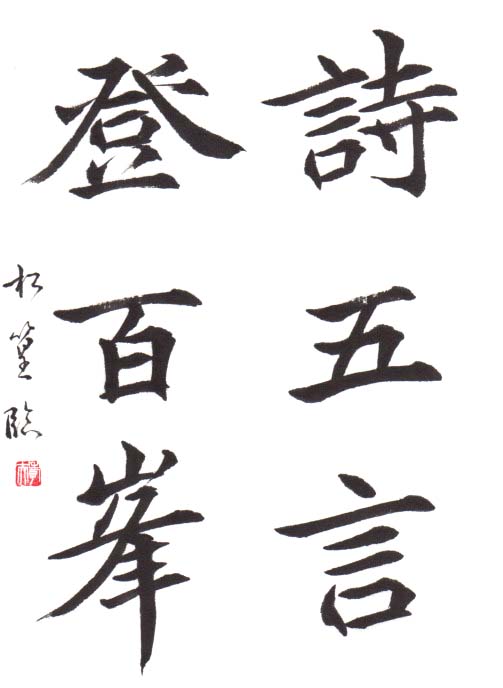 詩五言
登百峯
松篁臨